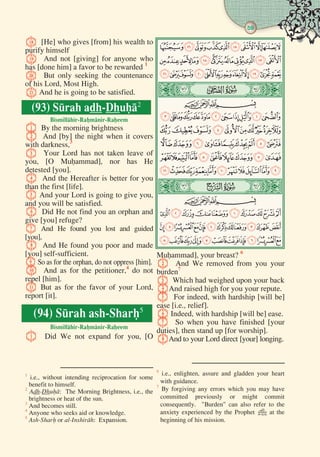 لَا يَصْلَىٰهَآ إِلَّا ٱلْأَشْقَى ١٥ ٱلَّذِى كَذَّبَ وَتَوَلَّىٰ ١٦ وَسَيُجَنَّبُهَا
ٱلْأَتْقَى ١٧ ٱلَّذِى يُؤْتِى مَالَهُۥ يَتَزَكَّىٰ ١٨ وَمَا لِأَحَدٍ عِندَهُۥ
مِن نِّعْمَةٍ تُجْزَىٰٓ ١٩ إِلَّا ٱبْتِغَآءَ وَجْهِ رَبِّهِ ٱلْأَعْلَىٰ ٢٠ وَلَسَوْفَ يَرْضَىٰ ٢١
سُورَةُ الضُّحَىٰ
بِسْمِ ٱللَّهِ ٱلرَّحْمَٰنِ ٱلرَّحِيمِ
وَٱلضُّحَىٰ ١ وَٱلَّيْلِ إِذَا سَجَىٰ ٢ مَا وَدَّعَكَ رَبُّكَ وَمَا قَلَىٰ ٣
وَلَلْءَاخِرَةُ خَيْرٌ لَّكَ مِنَ ٱلْأُولَىٰ ٤ وَلَسَوْفَ يُعْطِيكَ رَبُّكَ
فَتَرْضَىٰٓ ٥ أَلَمْ يَجِدْكَ يَتِيمًا فَـَٔاوَىٰ ٦ وَوَجَدَكَ ضَآلًّا
فَهَدَىٰ ٧ وَوَجَدَكَ عَآئِلًا فَأَغْنَىٰ ٨ فَأَمَّا ٱلْيَتِيمَ فَلَا
تَقْهَرْ ٩ وَأَمَّا ٱلسَّآئِلَ فَلَا تَنْهَرْ ١٠ وَأَمَّا بِنِعْمَةِ رَبِّكَ فَحَدِّثْ ١١
سُورَةُ الشَّرْحِ
بِسْمِ ٱللَّهِ ٱلرَّحْمَٰنِ ٱلرَّحِيمِ
أَلَمْ نَشْرَحْ لَكَ صَدْرَكَ ١ وَوَضَعْنَا عَنكَ وِزْرَكَ ٢
ٱلَّذِىٓ أَنقَضَ ظَهْرَكَ ٣ وَرَفَعْنَا لَكَ ذِكْرَكَ ٤ فَإِنَّ مَعَ ٱلْعُسْرِ يُسْرًا ٥
إِنَّ مَعَ ٱلْعُسْرِ يُسْرًا ٦ فَإِذَا فَرَغْتَ فَٱنصَبْ ٧ وَإِلَىٰ رَبِّكَ فَٱرْغَب ٨
[He] who gives [from] his wealth to
purify himself
And not [giving] for anyone who
has [done him] a favor to be rewarded 1
But only seeking the countenance
of his Lord, Most High.
And he is going to be satisfied.
(93) Sūrah adh-Dhuḥā2
Bismillāhir-Raḥmānir-Raḥeem
By the morning brightness
And [by] the night when it covers
with darkness,3
Your Lord has not taken leave of
you, [O Muḥammad], nor has He
detested [you].
And the Hereafter is better for you
than the first [life].
And your Lord is going to give you,
and you will be satisfied.
Did He not find you an orphan and
give [you] refuge?
And He found you lost and guided
[you],
And He found you poor and made
[you] self-sufficient.
So as for the orphan, do not oppress [him].
And as for the petitioner,4 do not
repel [him].
But as for the favor of your Lord,
report [it].
(94) Sūrah ash-Sharḥ5
Bismillāhir-Raḥmānir-Raḥeem
Did We not expand for you, [O
Muḥammad], your breast? 6
And We removed from you your
burden7
Which had weighed upon your back
And raised high for you your repute.
For indeed, with hardship [will be]
ease [i.e., relief].
Indeed, with hardship [will be] ease.
So when you have finished [your
duties], then stand up [for worship].
And to your Lord direct [your] longing.
1 i.e., without intending reciprocation for some
benefit to himself.
2 Adh-Dhuḥā: The Morning Brightness, i.e., the
brightness or heat of the sun.
3 And becomes still.
4 Anyone who seeks aid or knowledge.
5 Ash-Sharḥ or al-Inshirāḥ: Expansion.
6 i.e., enlighten, assure and gladden your heart
with guidance.
7 By forgiving any errors which you may have
committed previously or might commit
consequently. "Burden" can also refer to the
anxiety experienced by the Prophet ﷺ at the
beginning of his mission.